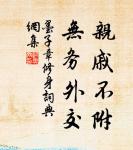 親戚不附
無務外交
墨子章修身詞典
網集